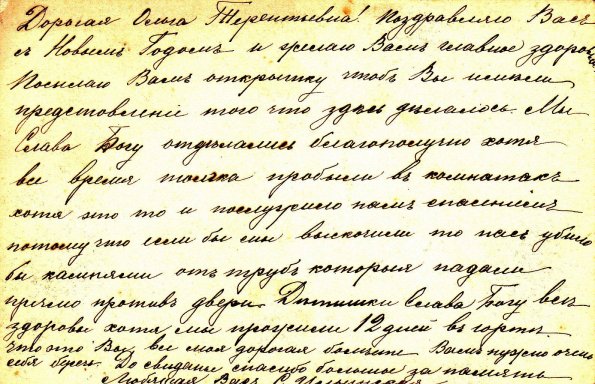 Дорогая Ольга Терентьевна! Поздравляю Васъ
съ Новымъ Годомъ и желаю Вамъ главное здоровья
Посылаю Вамъ открытку чтобъ Вы имѣли
представленіе того что здѣсь дѣлалось. Мы
Слава Богу отдѣлались благополучно хотя
все время толчка пробыли въ комнатахъ
хотя это то и послужило намъ спасеніемъ
потому что если бы мы выскочили то насъ убило
бы камнями отъ трубъ которыя падали
прямо противъ двери. Дѣтишки Слава Богу всѣ
здоровы хотя мы прожили 12 дней въ
что это Вы все моя дорогая болѣете Вамъ нужно очень
себя беречь. До свиданія спасибо большое за память
Любящая Васъ С.